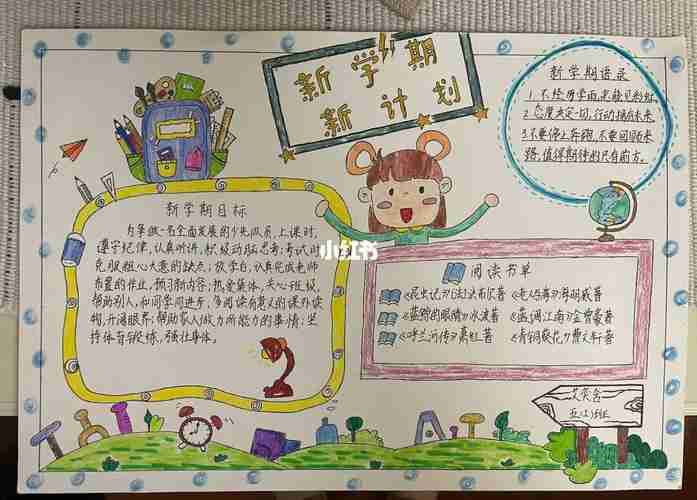 新学期
新计划
新学期语录
1.不经历学雨,怎能见彩虹。
2.态度决定一切,行动描在未来
3.不要停止奔跑,不要回顾来
路,值得期待的只有前方。
新学期目标
为争做一名全面发展的少先队员,上课时,
遵守纪律,认真听讲,积极动脑思考;考试时
克服粗心大意的缺点;放学后,认真完成老师
布置的作业,预习新内容;热爱集体,关心班级,
帮助别人,和同学同进步,多阅读有意义的课外读
物,开阔眼界;帮助家人做力所能力的事情;坚
持体育锻炼,强壮身体。
小红书
阅读书单
《昆虫记》(法)法布尔著
《老人与海》海明威著
《蓝鲸的眼睛》冰波著
《菡调江南》金曾豪著
《呼兰河传》萧红著
《青铜葵花》曹文轩著
五(2)班